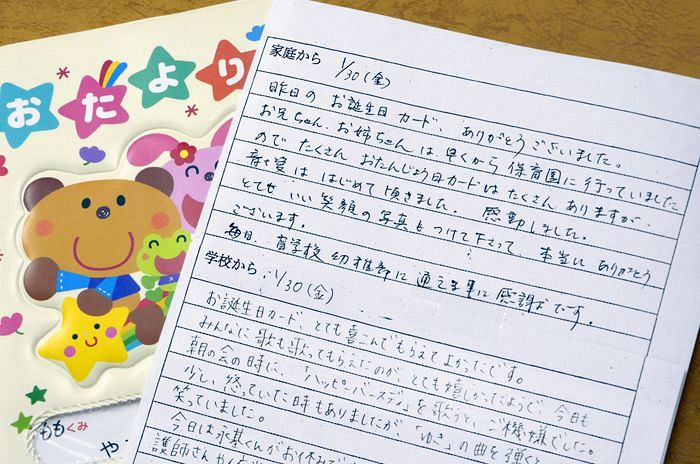 おたより
ももくみ
や
家庭から 1/30(金)
昨日の お誕生日カード、ありがとうございました。
お兄ちゃん、お姉ちゃんは 早くから 保育園に行っていました
ので たくさん おたんじょう日カードは たくさん ありますが、
は はじめて 頂きました。 感動しました。
とても いい 笑顔の 写真も つけて下さって 本当に ありがとう
ございます。
毎日、盲学校 幼稚部に 通える事に 感謝です。
学校から 1/30(金)
お誕生日カード、とても喜こんでもらえてよかったです。
みんなに歌も歌ってもらえたのが、とても嬉しかったようで、今日も
朝の会の時に、「ハッピーバースデー」を歌うと、ご機嫌でした。
少し、怒っていた時もありましたが、「ゆき」の曲を弾くと
笑っていました。
今日は永基くんがお休みで
護師さん